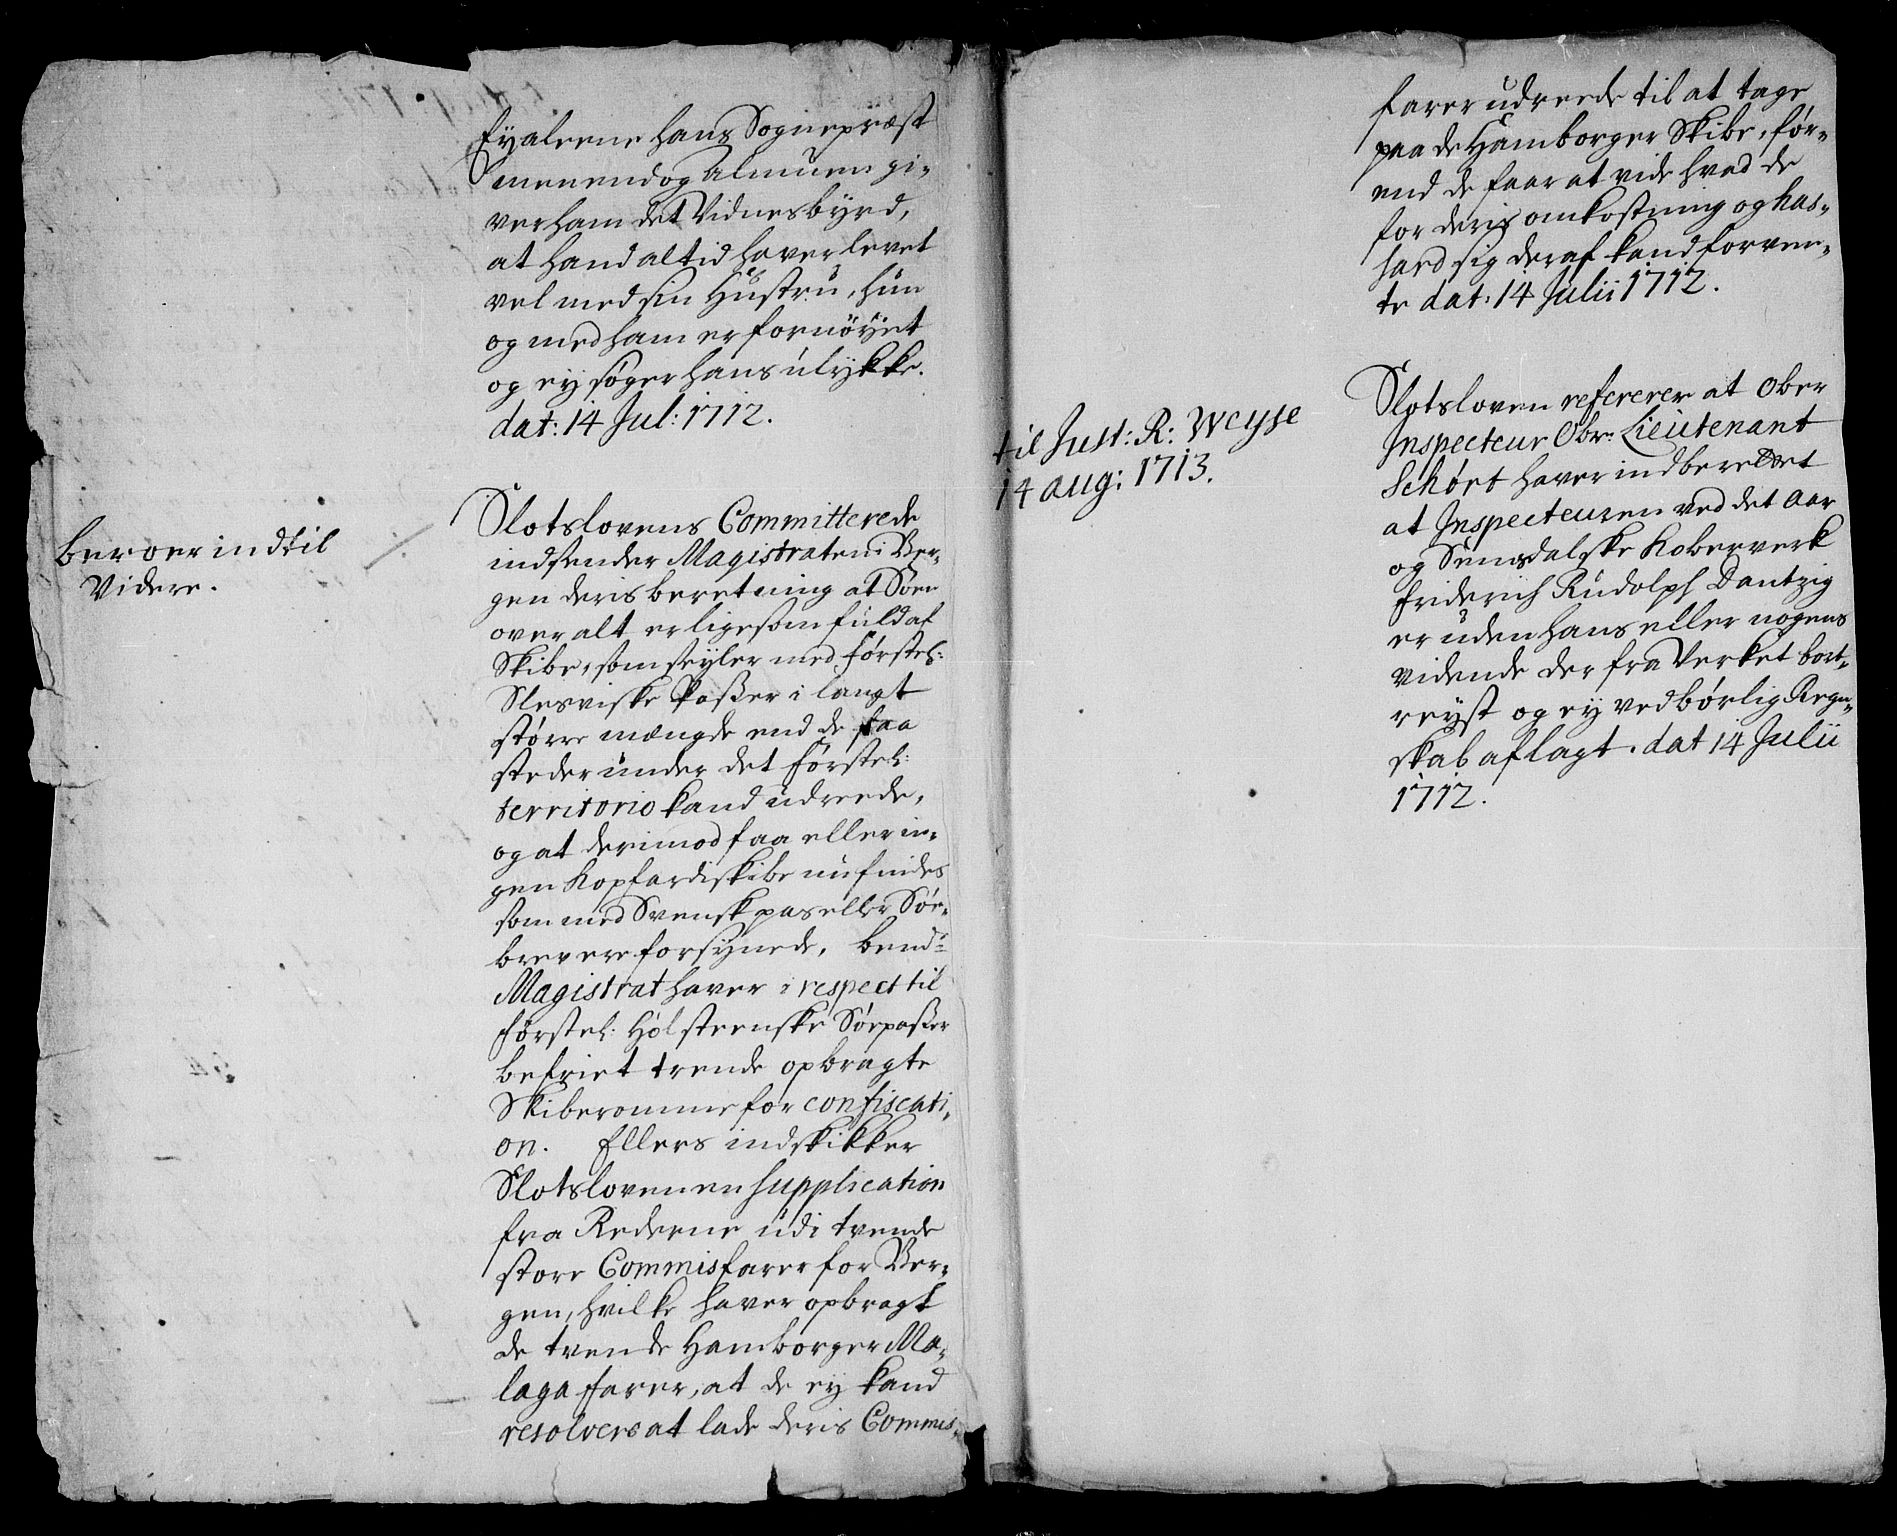 Ey aleene hans Sognepræst
men endog Almuen gi-
ver ham det Vidnesbyrd,
at hand altid haver levet
vel med sin Hustru, hun
og med ham er fornøyet
og ey søger hans ulykke.
dat: 14 Jul: 1712.
beroer indtil
Videre.
Slotslovens Committerede
indsender Magistraten i Ber-
gen deris beretning at Søen
over alt er ligesom fuld af
Skibe, som seyler med Førstel:
Slesviske Passer i langt
større mængde end de faa
steder under det Førstel:
territorio kand udreede,
og at derimod faa eller in-
gen Kopfardiskibe nu findes
som med Svensk pas eller Søe-
brev ere forsynede, bemd:te
Magistrat haver i respect til
Førstel: Holsteenske Søepasser
befriet trende opbragte
Skiberomme for confiscati-
on. Ellers indskikker
Slotsloven en supplication
fra Rederne udi tvende
store Commisfarer for Ber-
gen, hvilke haver opbragt
de tvende Hamborger Ma-
laga farer, at de ey kand
resolvere at lade deris Commis-
farer udreede til at tage
paa de Hamborger Skibe, før-
end de faar at vide hvad de
for deris omkostning og has-
hard sig deraf kand forven-
te dat: 14 Julii 1712.
til Just: R: Weyse
14 aug: 1713.
Slotsloven refererer at Ober
Inspecteur Obr: Lieutenant
Schørt haver indberettet
at Inspecteuren ved det Aar
og Semsdalske Koberverk
Friderich Rudolph Dantzig
er uden hans eller nogens
vidende der fra Verket bort-
reyst og ey vedbørlig Regn-
skab aflagt. dat 14 Julii
1712.